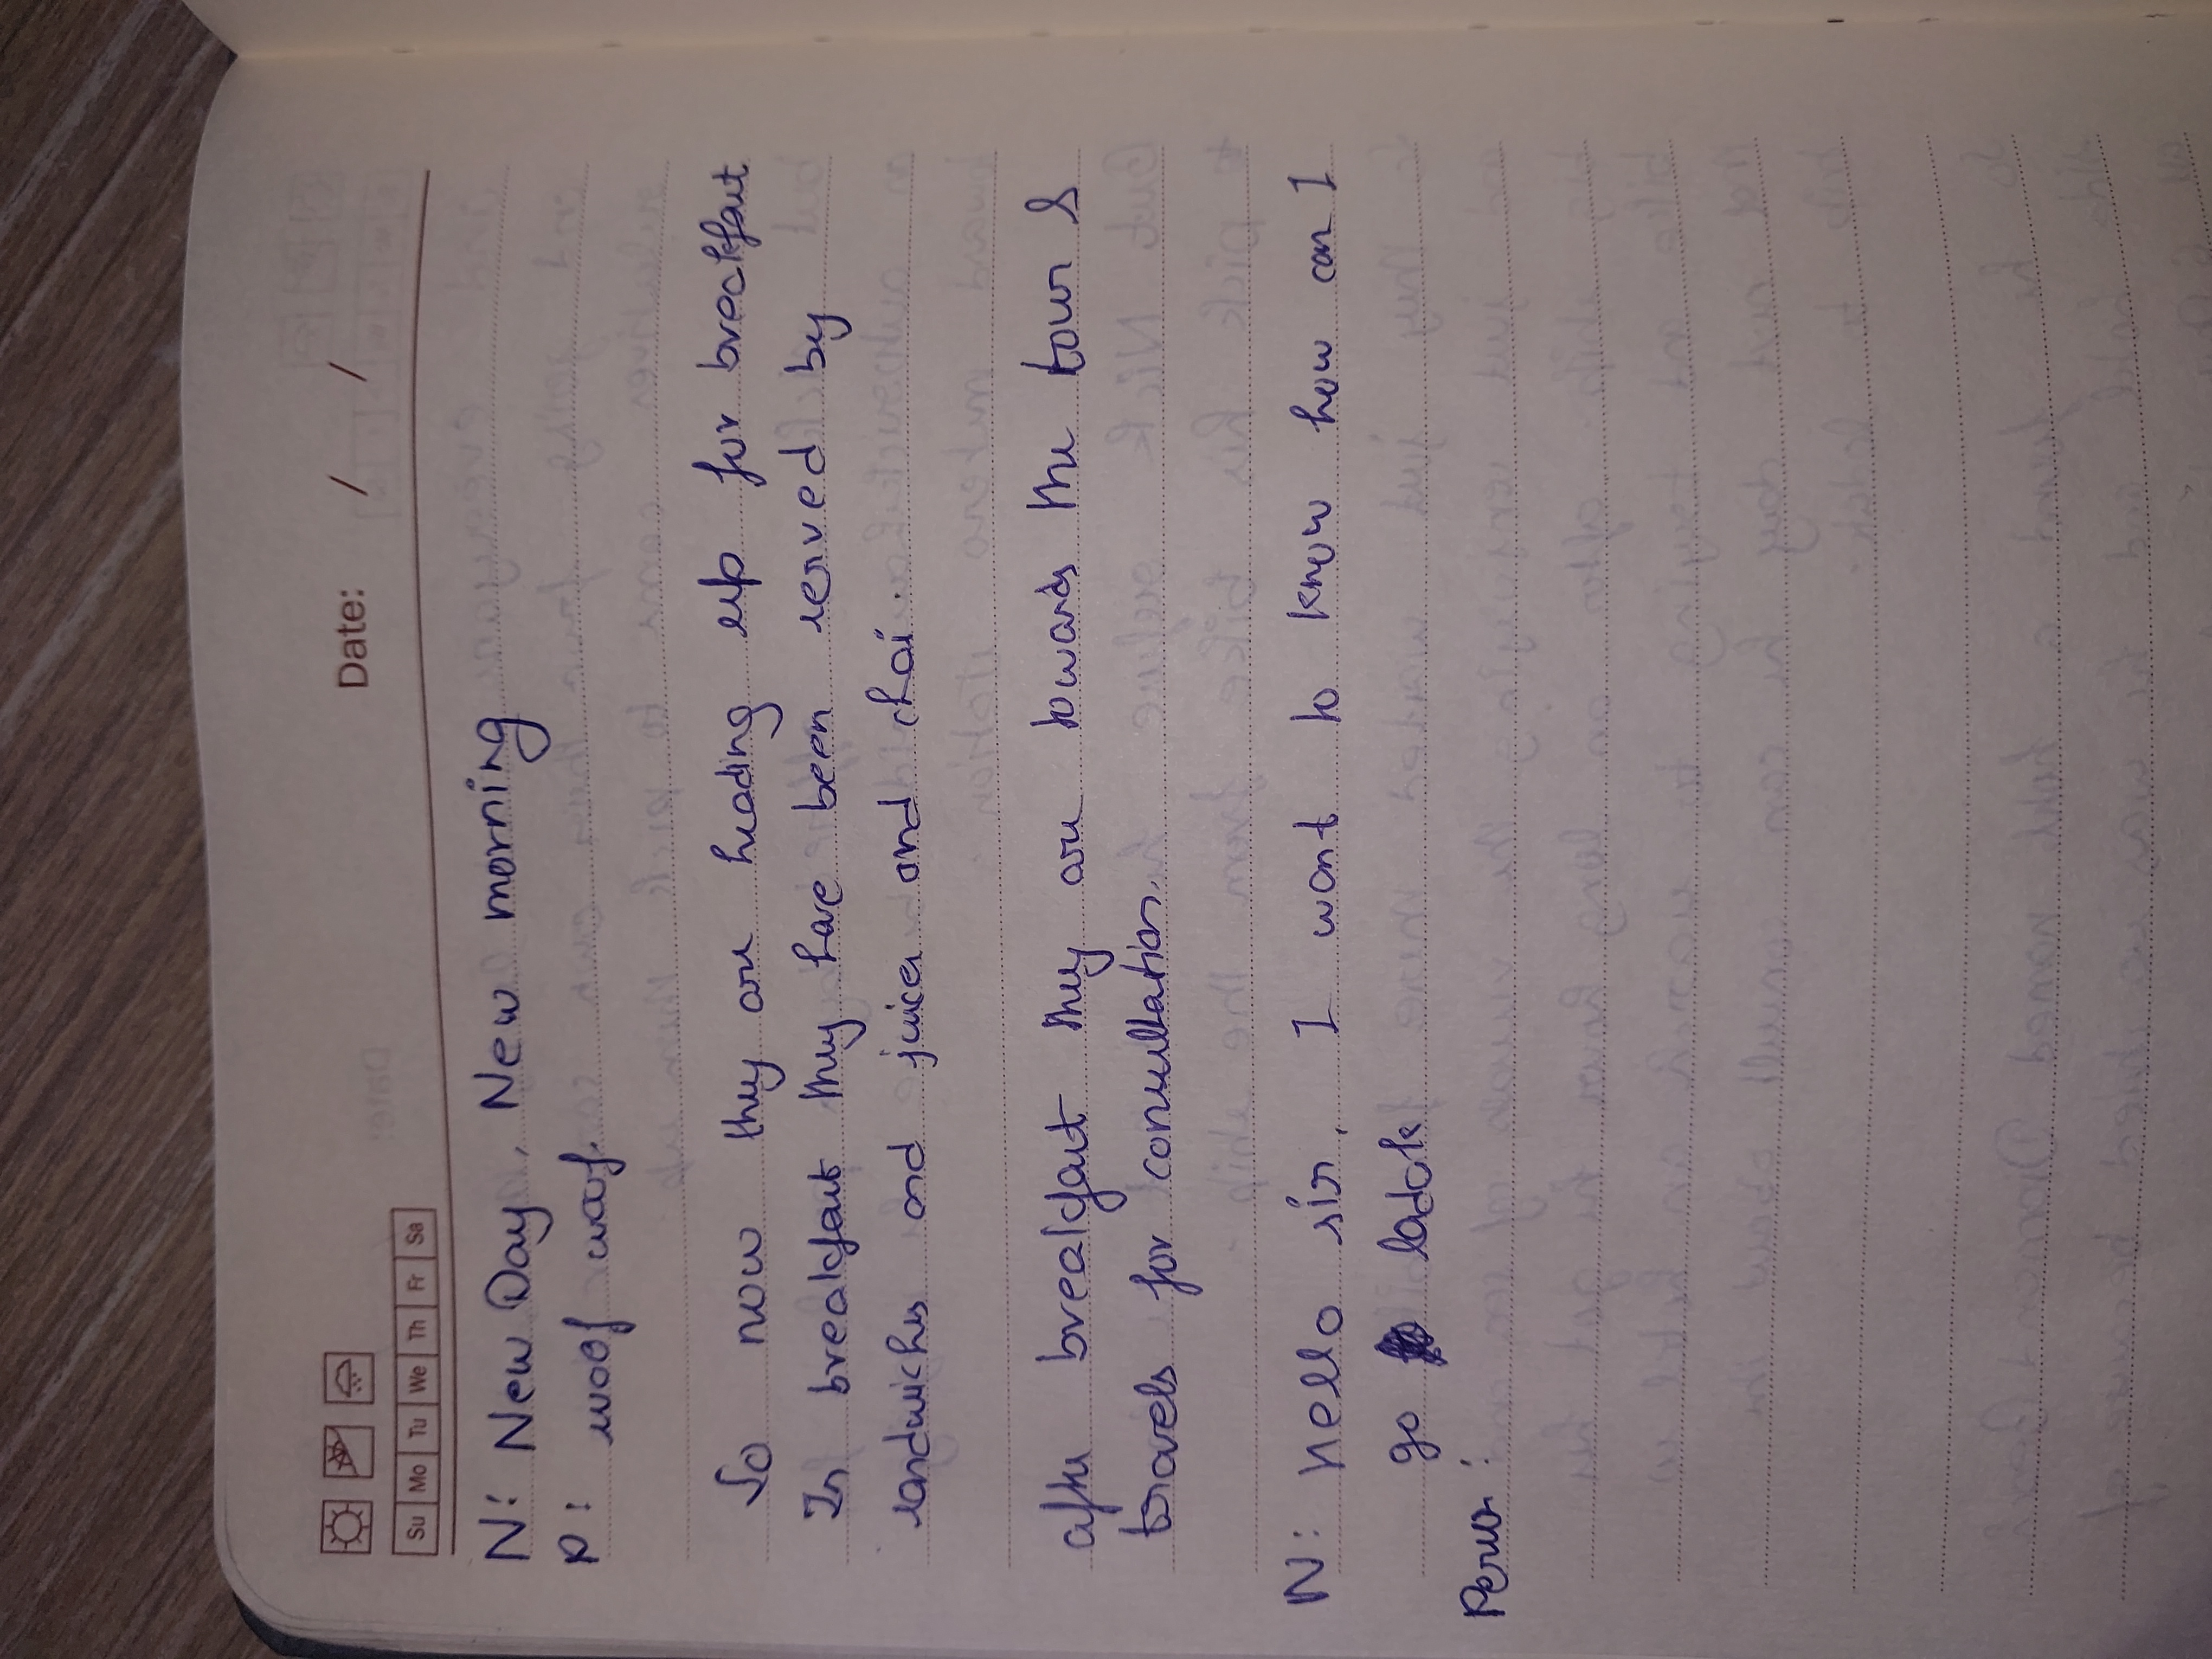 Date: / /
Su Mo Tu We Th Fr Sa
N: New Day, New morning
P: woof woof.
So now they are heading up for breakfast
In breakfast they have been served by
sandwiches and juices and chai.
after breakfast they are towards the tour &
travels for consultation.
N: Hello sir, I want to know how can I
go ladak
Person: